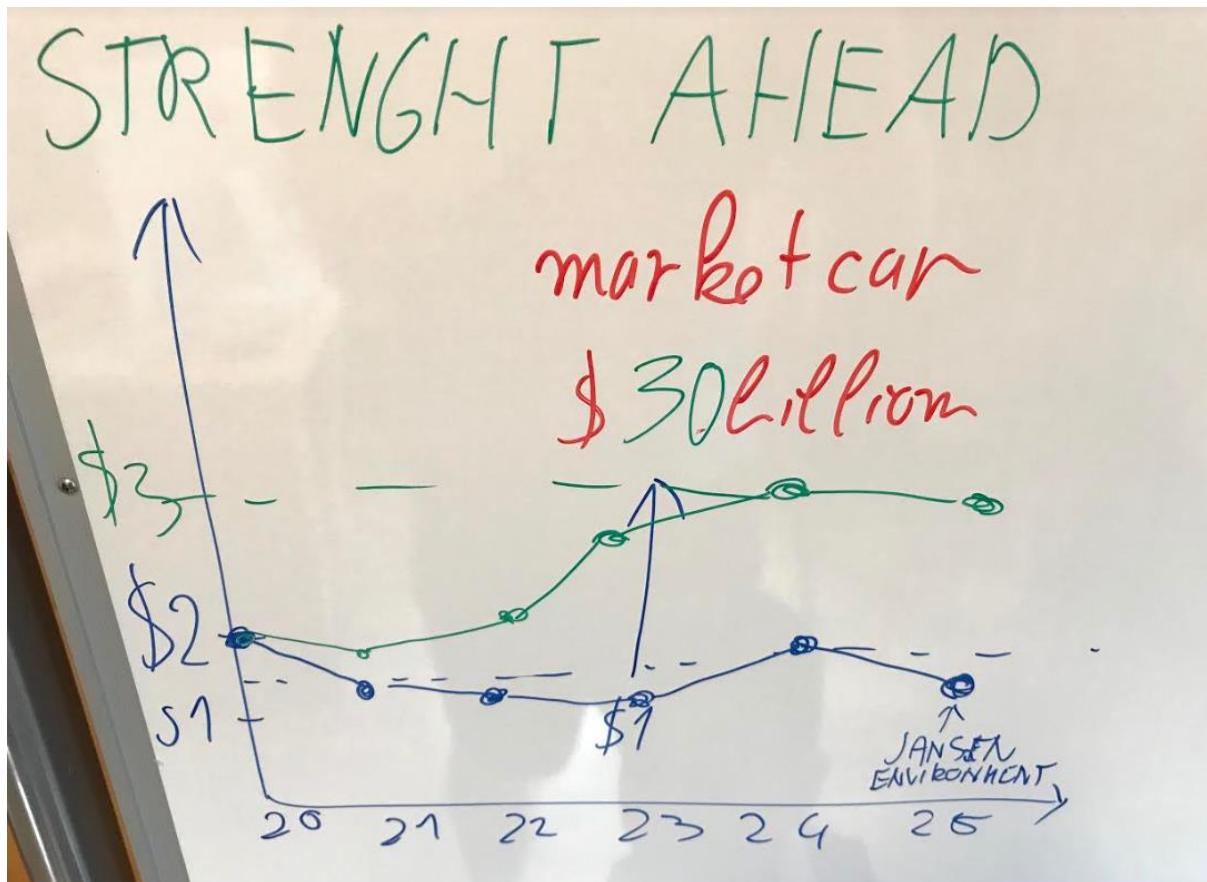 STRENGHT AHEAD
market car
$30 billion
$3
$2
$1
$1
JANSEN
ENVIRONMENT
20 21 22 23 24 25